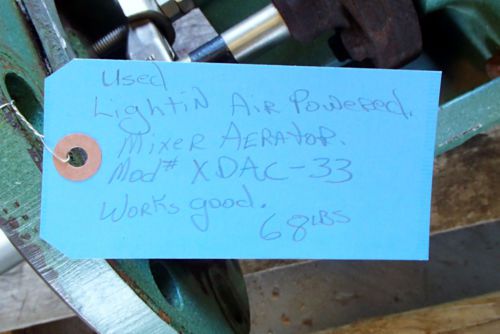 Used
LightiN Air Powered.
Mixer Aerator.
Mod# XDAC-33
Works good.
68 LBS